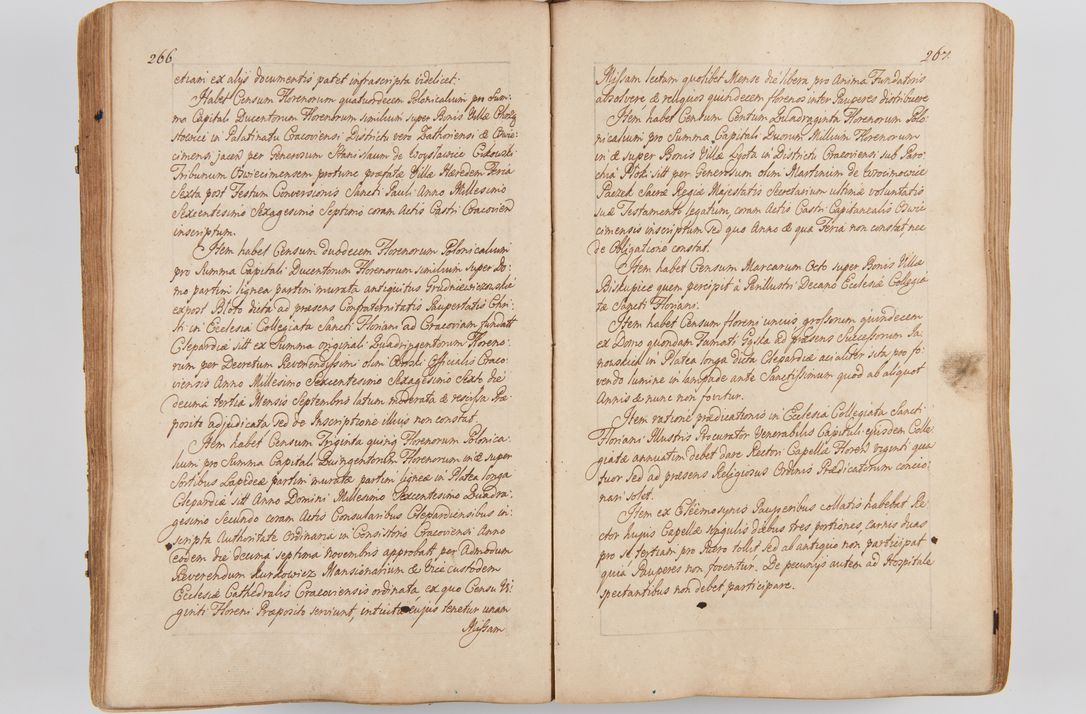 266
etiam ex alijs documentis patet infrascripta videlicet:
Habet Censum Florenorum quatuordecem Polonicalium pro Sum:
ma Capitali Ducentorum Florenorum similium super Bonis Villæ
in Palatinatu Cracoviensi Districtu vero Zathoriensi & Oswie:
cimensi jacen per Generosum Stanislaum de Woysławice
Tribunum Oswiecimensem protunc præfatæ Villæ Hæredem Feria
Sexta post Festum Conversionis Sancti Pauli Anno Millesimo
Sexcentesimo Sexagesimo Septimo coram Actis Castri Cracovien
inscriptum.
Item habet Censum duodecem Florenorum Polonicalium
pro Summa Capitali Ducentorum Florenorum similium super Do:
mo partim lignea partim murata antiquitus
ex post Bloto dicta ad præsens Confraternitatis Paupertatis Chri:
sti in Ecclesia Collegiata Sancti Floriani ad Cracoviam fundatt
Clepardiæ sitt ex Summa originali Quadringentorum Floreno:
rum per Decretum Reverendissimi olim Officialis Craco:
viensis Anno Millesimo Sexcentesimo Sexagesimo Sexto die
decima tertia Mensis Septembris latum moderata & rescissa Præ:
posito adjudicata sed de Inscriptione illius non constat.
Item habet Censum Triginta quinq Florenorum Polonica:
lium pro Summa Capitali Quingentorum Florenorum in & super
Sortibus Lapideæ partim muratæ partim ligneæ in Platea longa
Clepardiæ sitt Anno Domini Millesimo Sexcentesimo Quadra:
gesimo Secundo coram Actis Consularibus Clepardiensibus in:
scripta Authoritate Ordinaria in Consistorio Cracoviensi Anno
eodem die decima septima Novembris approbatt per Admodum
Reverendum Kurdowicz Mansionarium & Vice custodem
Ecclesiæ Cathedralis Cracoviensis ordinata ex quo Censu Vi:
ginti Floreni Præposito serviunt, intuitu cujus tenetur unam
Missam
267.
Missam lectam quolibet Mense die libera pro Anima Fundatoris
absolvere & reliquos quindecem florenos inter Pauperes distribuere
Item habet Censum Centum Quadraginta Florenorum Polo:
nicalium pro Summa Capitali Duorum Millium Florenorum
in & super Bonis Villæ Lgota in Districtu Cracoviensi sub Paro:
chia Ploki sitt per Generosum olim Martinum de Wrocimowice
Paczek Sacræ Regiæ Majestatis Secretarium ultimæ voluntatis
suæ Testamento legatum, coram Actis Castri Capitanealis Oswie:
cimensis inscriptum sed quo Anno & qua Feria non constat nec
de Obligatione constat.
Item habet Censum Marcarum Octo super Bonis Villæ
Biskupice quem percipit à Perillustri Decano Ecclesiæ Collegia:
tæ Sancti Floriani.
Item habet Censum floreni unius grossorum quindecem
ex Domo quondam Famati ad præsens Successorum
in Platea longa dicta Clepardiæ sita pro fo:
vendo lumine in lampade ante Sanctissimum quod ab aliquot
Annis & nunc non fovitur.
Item ratione prædicationis in Ecclesia Collegiata Sancti
Floriani Illustris Procurator Venerabilis Capituli ejusdem Colle:
giatæ annuatim debet dare Rectori Capellæ Floren Viginti qua
tuor sed ad præsens Religiosus Ordinis Prædicatorum concio:
nari solet.
Item ex Eleemosynis Pauperibus collatis habebat Re:
ctor hujus Capellæ singulis diebus tres portiones carnis duas
pro se, tertiam pro Puero tollit sed ab antiquo non participat
quia Pauperes non foventur. De pecunijs autem ad Hospitale
spectantibus non debet participare.